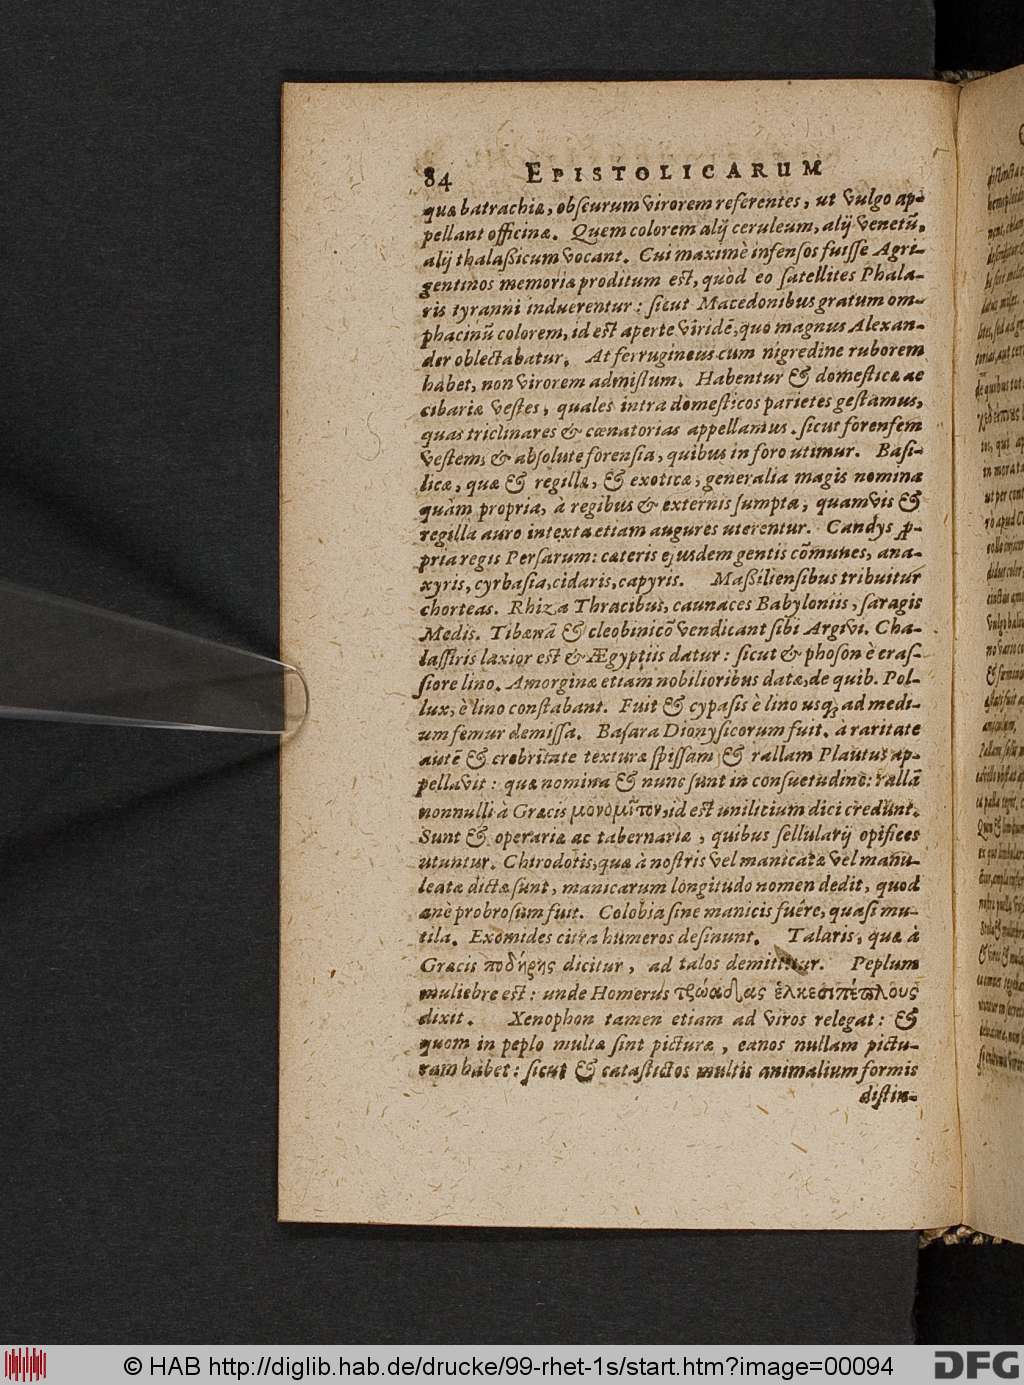 84 EPISTOLICARUM
quæ batrachiæ, obscurum virorem referentes, ut vulgo ap-
pellant officinæ. Quem colorem alij ceruleum, alij venetū,
alij thalaßicum vocant. Cui maximè infensos fuisse Agri-
gentinos memoriæ proditum est, quòd eo satellites Phala-
ris tyranni induerentur: sicut Macedonibus gratum om-
phacinū colorem, id est aperte viridē, quo magnus Alexan-
der oblectabatur. At ferrugineus cum nigredine ruborem
habet, non virorem admistum. Habentur & domesticæ ac
cibariæ vestes, quales intra domesticos parietes gestamus,
quas triclinares & cœnatorias appellamus. sicut forensem
vestem, & absolute forensia, quibus in foro utimur. Basi-
licæ, quæ & regillæ, & exoticæ, generalia magis nomina
quàm propria, à regibus & externis sumpta, quamvis &
regilla auro intexta etiam augures uterentur. Candys ꝓ-
pria regis Persarum: cæteris ejusdem gentis cōmunes, ana-
xyris, cyrbasia, cidaris, capyris. Maßiliensibus tribuitur
chorteas. Rhiza Thracibus, caunaces Babyloniis, saragis
Medis. Tibænā & cleobinicō vendicant sibi Argivi. Cha-
lastris laxior est & Ægyptiis datur: sicut & phoson è cras-
siore lino. Amorginæ etiam nobilioribus datæ, de quib. Pol-
lux, è lino constabant. Fuit & cypasis è lino usq; ad medi-
um femur demissa. Basara Dionysicorum fuit. à raritate
autē & crebritate texturæ spissam & rallam Plautus ap-
pellavit: quæ nomina & nunc sunt in consuetudine: rallā
nonnulli à Græcis μονομῖτον, id est unilicium dici credunt.
Sunt & operariæ ac tabernariæ, quibus sellularij opifices
utuntur. Chirodotis, quæ à nostris vel manicatæ vel manu-
leatæ dictæ sunt, manicarum longitudo nomen dedit, quod
anè probrosum fuit. Colobia sine manicis fuêre, quasi mu-
tila. Exomides citra humeros desinunt. Talaris, quæ à
Græcis ποδήρης dicitur, ad talos demittitur. Peplum
muliebre est: unde Homerus τρωάδας ἑλκεσιπέπλους
dixit. Xenophon tamen etiam ad viros relegat: &
quom in peplo multæ sint picturæ, eanos nullam pictu-
ram habet: sicut & catastictos multis animalium formis
distin-
© HAB http://diglib.hab.de/drucke/99-rhet-1s/start.htm?image=00094
DFG